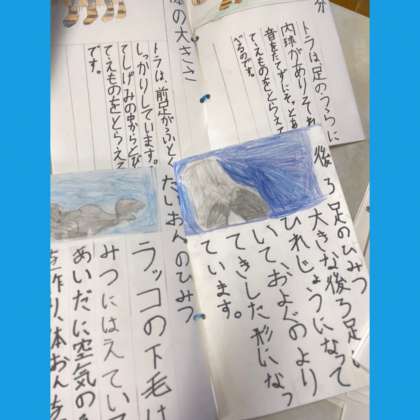 分
トラは足のうらに
内球がありそれ
音をたてずにそ
てえものをとらえ
べるのです。
の大きさ
トラは、前足がふとく
しっかりしています。
てしげみの中からとび
てえものをとらえて
です。
後ろ足のひみつ
大きな後ろ足
ひれじょうになって
いて、およぐのより
てきした形になっ
ています。
たいおんのひみつ
ラッコの下毛は
みつにはえてい
あいだに空気の
を作り、体おん